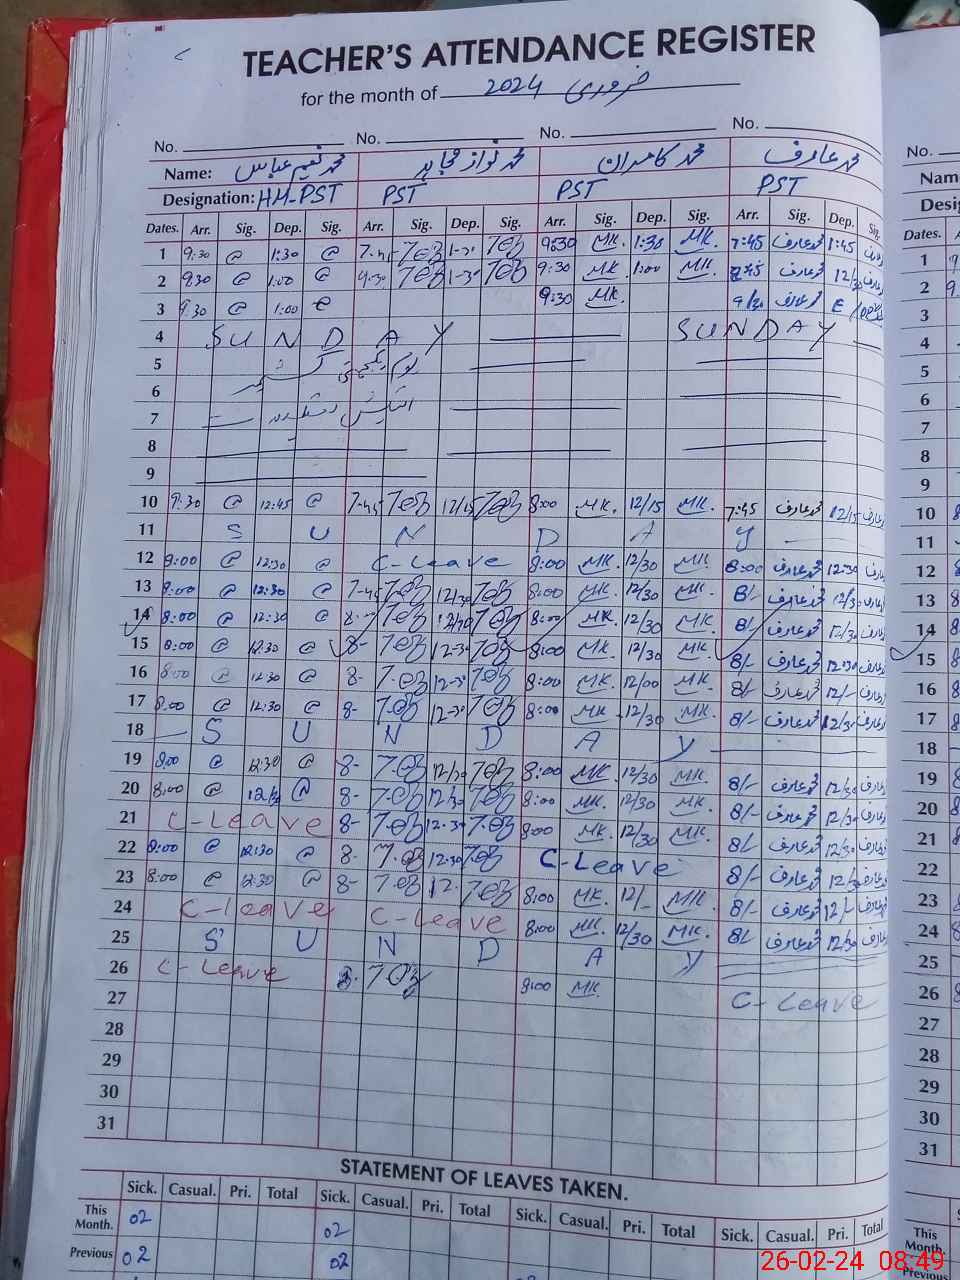 TEACHER'S ATTENDANCE REGISTER
for the month of 2024 فروری
No. No. No. No.
Name: محمد نعیم عباس محمد نواز مجاہد محمد کامران محمد عارف
Designation: HM-PST PST PST PST
Dates. Arr. Sig. Dep. Sig. Arr. Sig. Dep. Sig. Arr. Sig. Dep. Sig. Arr. Sig. Dep. Sig.
1 9:30 @ 1:30 @ 9:30 MK. 1:30 MK. 7:45 محمد عارف 1:45 عارف
2 9:30 @ 1:00 @ 9:30 MK 1:00 MK محمد عارف عارف
3 9:30 @ 1:00 e 9:30 MK. محمد عارف E
4 SUNDAY SUNDAY
5 یوم یکجہتی کشمیر
6
7 الیکشن
8
9
10 9:30 @ 12:45 @ 7-45 12/15 8:00 MK. 12/15 MK. 7:45 محمد عارف 12/15 عارف
11 SUNDAY
12 8:00 @ 12:30 @ C-Leave 8:00 MK. 12/30 MK. 8:00 محمد عارف 12:30 عارف
13 8:00 @ 12:30 @ 7-45 12/30 8:00 MK. 12/30 MK. 8/- محمد عارف 12/30 عارف
14 8:00 @ 12:30 @ 8- 8:00 MK. 12/30 MK. 8/- محمد عارف 12/30 عارف
15 8:00 @ 12:30 @ 8- 12-30 8:00 MK. 12/30 MK. 8/- محمد عارف 12:30 عارف
16 8:00 @ 12:30 @ 8- 12-30 8:00 MK. 12/00 MK. 8/- محمد عارف 12/- عارف
17 8:00 @ 12:30 @ 8- 12-30 8:00 MK. 12/30 MK. 8/- محمد عارف 12/30 عارف
18 SUNDAY
19 8:00 @ 12:30 @ 8- 12/30 8:00 MK. 12/30 MK. 8/- محمد عارف 12/30 عارف
20 8:00 @ @ 8- 12/30 8:00 MK. 12/30 MK. 8/- محمد عارف 12/30 عارف
21 C-Leave 8- 12-30 8:00 MK. 12/30 MK. 8/- محمد عارف 12/30 عارف
22 8:00 @ 12:30 @ 8- 12-30 C-Leave 8/- محمد عارف 12/30 عارف
23 8:00 @ 12:30 @ 8- 12- 8:00 MK. 12/- MK. 8/- محمد عارف 12/- عارف
24 C-leave C-leave 8:00 MK. 12/30 MK. 8/- محمد عارف 12/30 عارف
25 SUNDAY
26 C-Leave 8- 8:00 MK. C-Leave
27
28
29
30
31
STATEMENT OF LEAVES TAKEN.
Sick. Casual. Pri. Total Sick. Casual. Pri. Total Sick. Casual. Pri. Total Sick. Casual. Pri. Total
This Month. 02 02
Previous 02 02
No.
Name
Dates.
1
2
3
4
5
6
7
8
9
10
11
12
13
14
15
16
17
18
19
20
21
22
23
24
25
26
27
28
29
30
31
This Month.
Previous
26-02-24 08:49